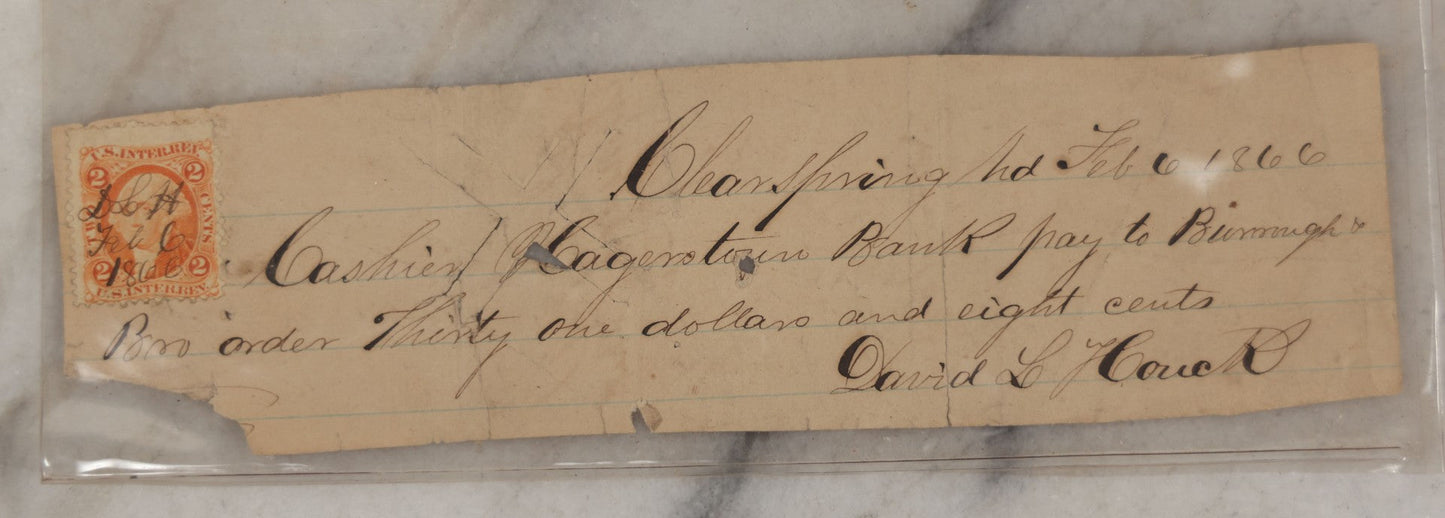 U.S. INTER. REV.
2 2
TWO CENTS
D L H
Feb 6
1866
2 2
U.S. INTER. REV.
Clearspring Md Feb 6 1866
Cashier Hagerstown Bank pay to Burrough &
Bro order Thirty one dollars and eight cents
David L Houck